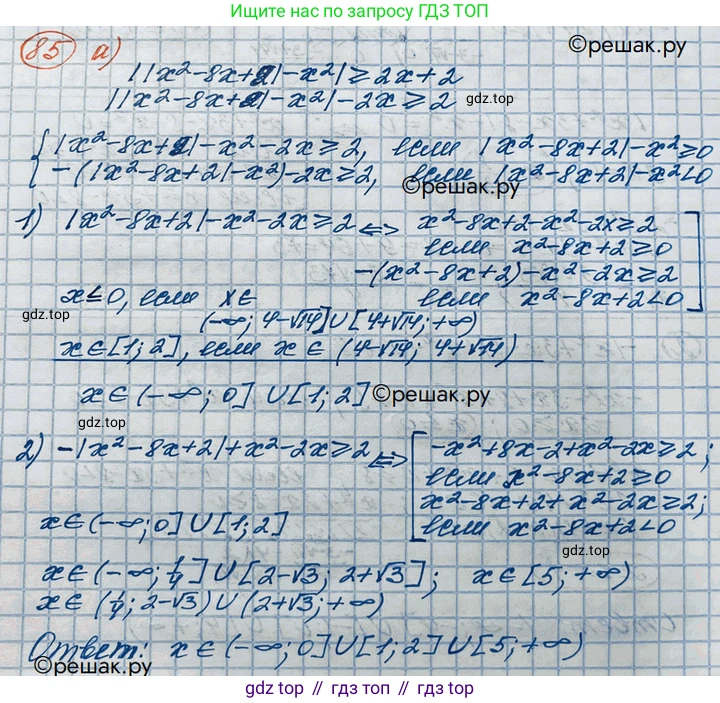 Ищите нас по запросу ГДЗ ТОП
85 а)
©решак.ру
||x²-8x+2|-x²|≥2x+2
||x²-8x+2|-x²|-2x≥2
gdz.top
{|x²-8x+2|-x²-2x≥2, если |x²-8x+2|-x²≥0
-(|x²-8x+2|-x²)-2x≥2, если |x²-8x+2|-x²<0
©решак.ру
1) |x²-8x+2|-x²-2x≥2 ⇔ x²-8x+2-x²-2x≥2
если x²-8x+2≥0
-(x²-8x+2)-x²-2x≥2
x≤0, если x∈ если x²-8x+2<0
gdz.top
(-∞; 4-√14]∪[4+√14; +∞)
x∈[1; 2], если x∈(4-√14; 4+√14)
x∈(-∞; 0]∪[1; 2] ©решак.ру
gdz.top
2) -|x²-8x+2|+x²-2x≥2 ⇔ [-x²+8x-2+x²-2x≥2;
если x²-8x+2≥0
x²-8x+2+x²-2x≥2;
x∈(-∞; 0]∪[1; 2] если x²-8x+2<0
gdz.top
x∈(-∞; 1/4]∪[2-√3; 2+√3]; x∈[5; +∞)
x∈(1/4; 2-√3)∪(2+√3; +∞)
Ответ: x∈(-∞; 0]∪[1; 2]∪[5; +∞)
©решак.ру
gdz.top // гдз.топ // gdz.top